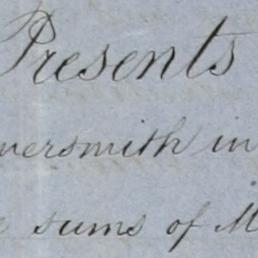 Presents
versmith in
sums of M